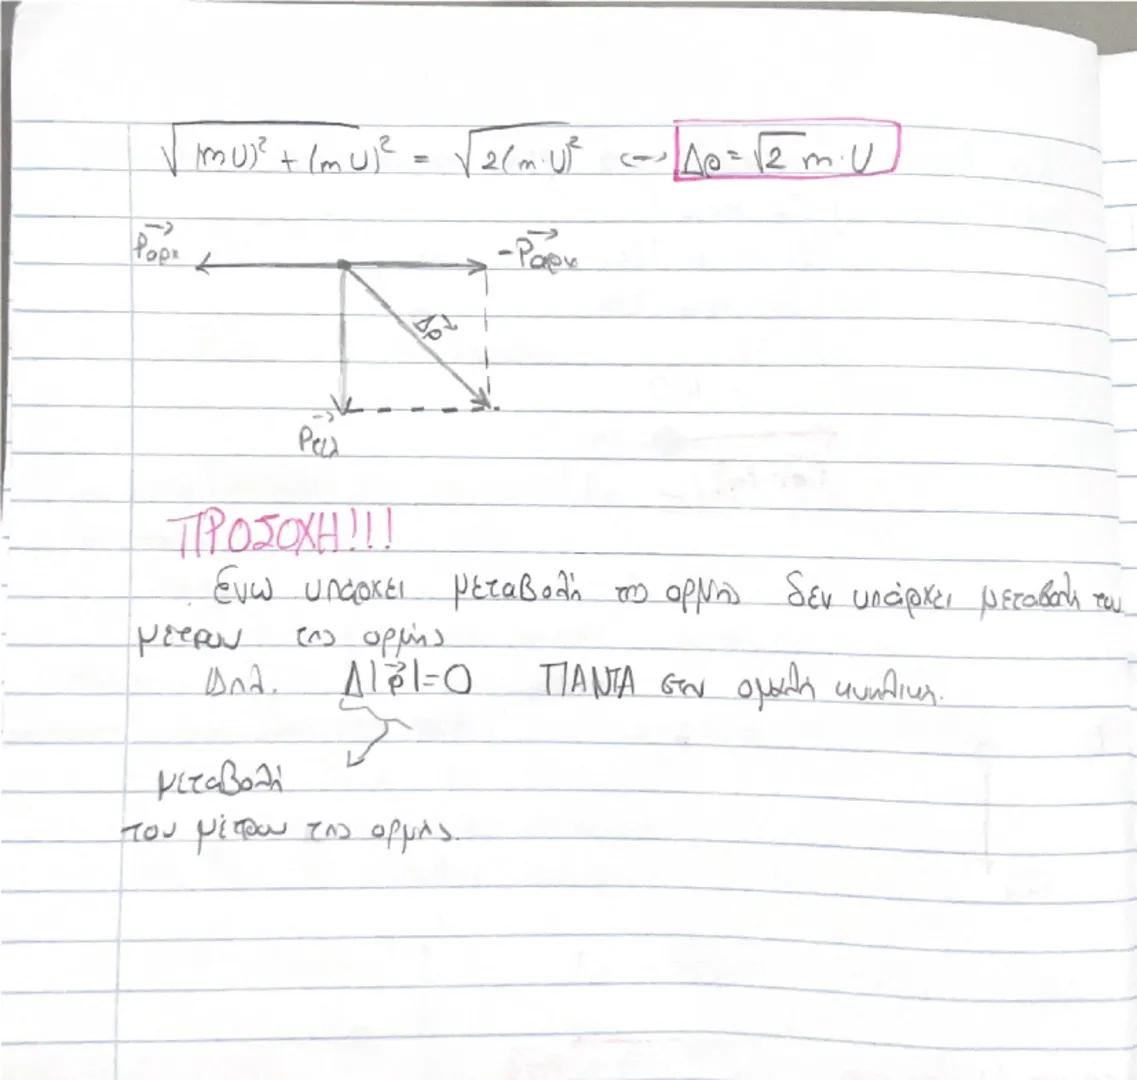 √(mυ)² + (mυ)² = √2(m·υ)² <-> Δp = √2 m·υ
Pαρχ -Pαρχ
Δp
Pτελ
ΠΡΟΣΟΧΗ!!!
Ενώ υπάρχει μεταβολή της ορμής δεν υπάρχει μεταβολή του
μέτρου της ορμής
Δηλ. Δ|p|=0 ΠΑΝΤΑ στην ομαλή κυκλική.
μεταβολή
του μέτρου της ορμής.